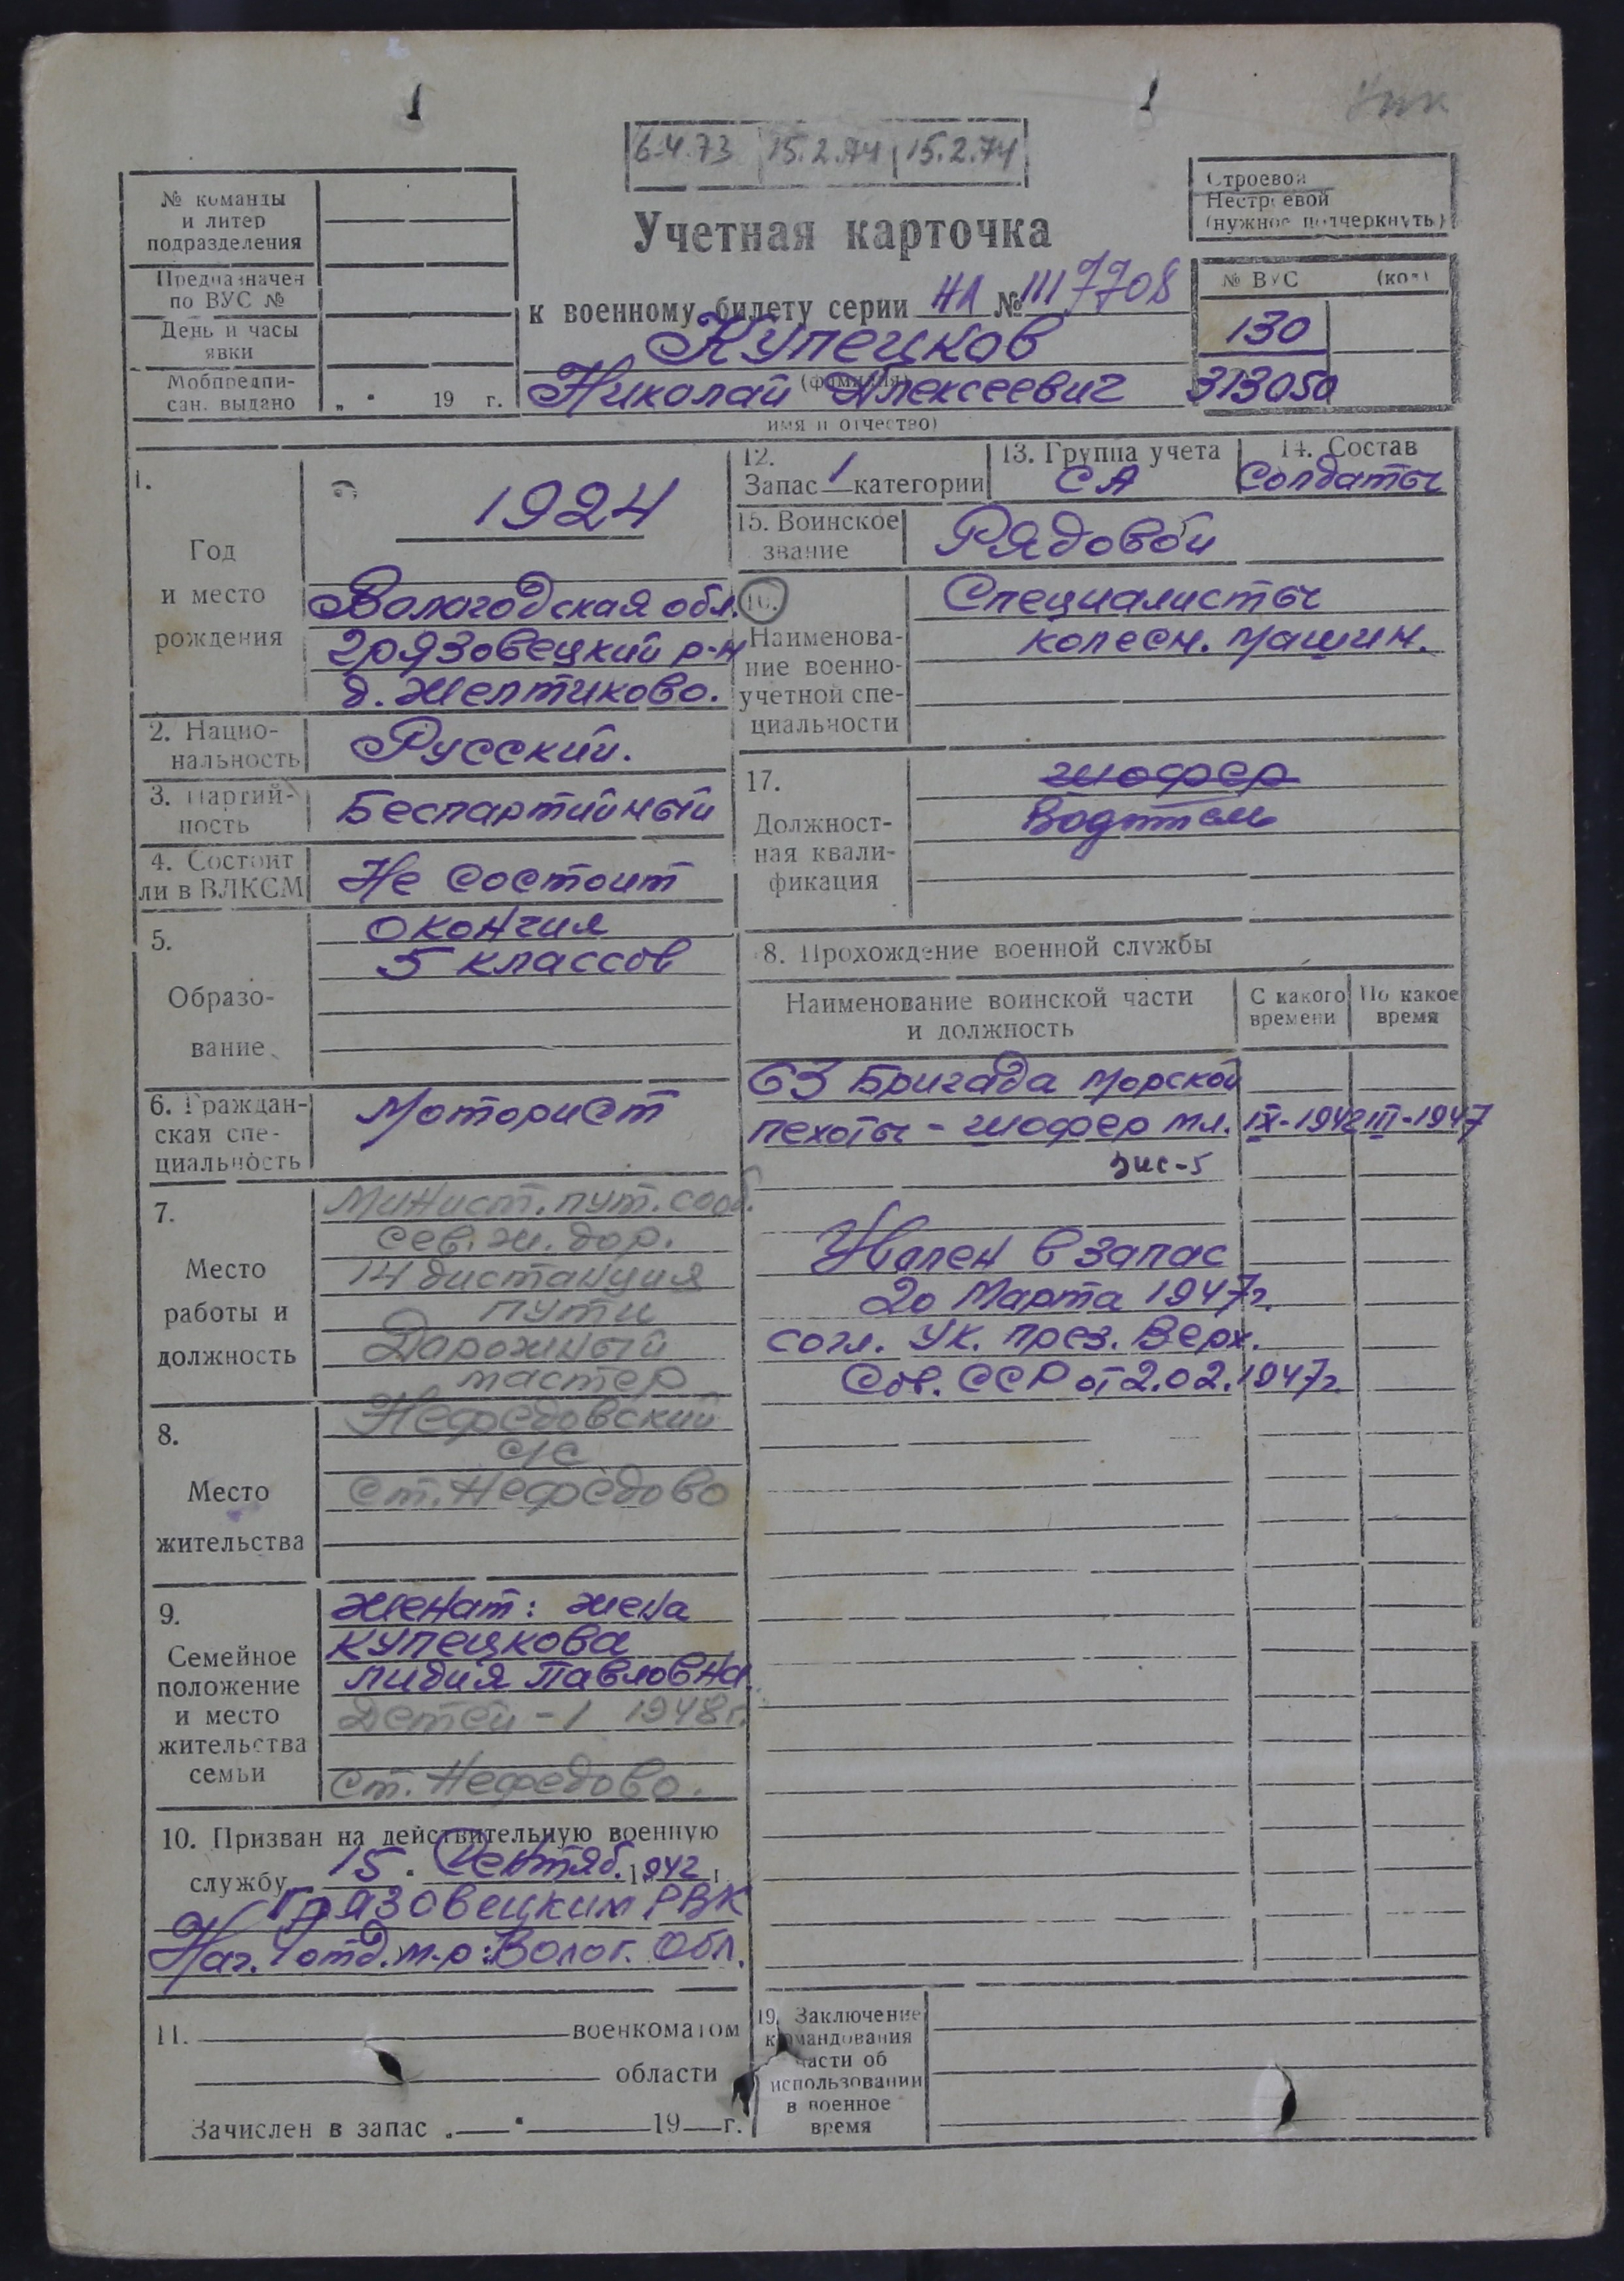 6.4.73 15.2.74 15.2.74
№ команды
и литер
подразделения
Предназначен
по ВУС №
День и часы
явки
Мобпредпи-
сан. выдано „ " 19 г.
Строевой
Нестроевой
(нужное подчеркнуть)
Учетная карточка
к военному билету серии НЛ № 1117708
Купецков
(фамилия)
Николай Алексеевич
имя и отчество)
№ ВУС (код)
130
313050
1.
Год
и место
рождения
1924
Вологодская обл.
Грязовецкий р-н
д. Желтиково.
2. Нацио-
нальность
Русский.
3. Партий-
ность
Беспартийный
4. Состоит
ли в ВЛКСМ
Не состоит
5.
Образо-
вание
Окончил
5 классов
6. Граждан-
ская спе-
циальность
Моторист
7.
Место
работы и
должность
Минист. пут. сооб.
Сев. ж. дор.
14 дистанция
пути
Дорожный
мастер
8.
Место
жительства
Нефедовский
с/с
ст. Нефедово
9.
Семейное
положение
и место
жительства
семьи
Женат: жена
Купецкова
Лидия Павловна.
Детей - 1 1948г.
ст. Нефедово.
10. Призван на действительную военную
службу 15. Сентяб. 1942 г.
Грязовецким РВК
Нач. 1 отд. м-р: Волог. Обл.
11. военкоматом
области
Зачислен в запас „ " 19 г.
12.
Запас 1 категории
13. Группа учета
СА
14. Состав
Солдаты
15. Воинское
звание
Рядовой
16.
Наименова-
ние военно-
учетной спе-
циальности
Специалисты
колесн. машин.
17.
Должност-
ная квали-
фикация
шофер
Водитель
18. Прохождение военной службы
Наименование воинской части
и должность
С какого
времени
По какое
время
63 Бригада морской
пехоты - шофер мл. IX-1942 III-1947
Зис-5
Уволен в запас
20 Марта 1947г.
согл. Ук. През. Верх.
Сов. ССР от 2.02.1947г.
19. Заключение
командования
части об
использовании
в военное
время